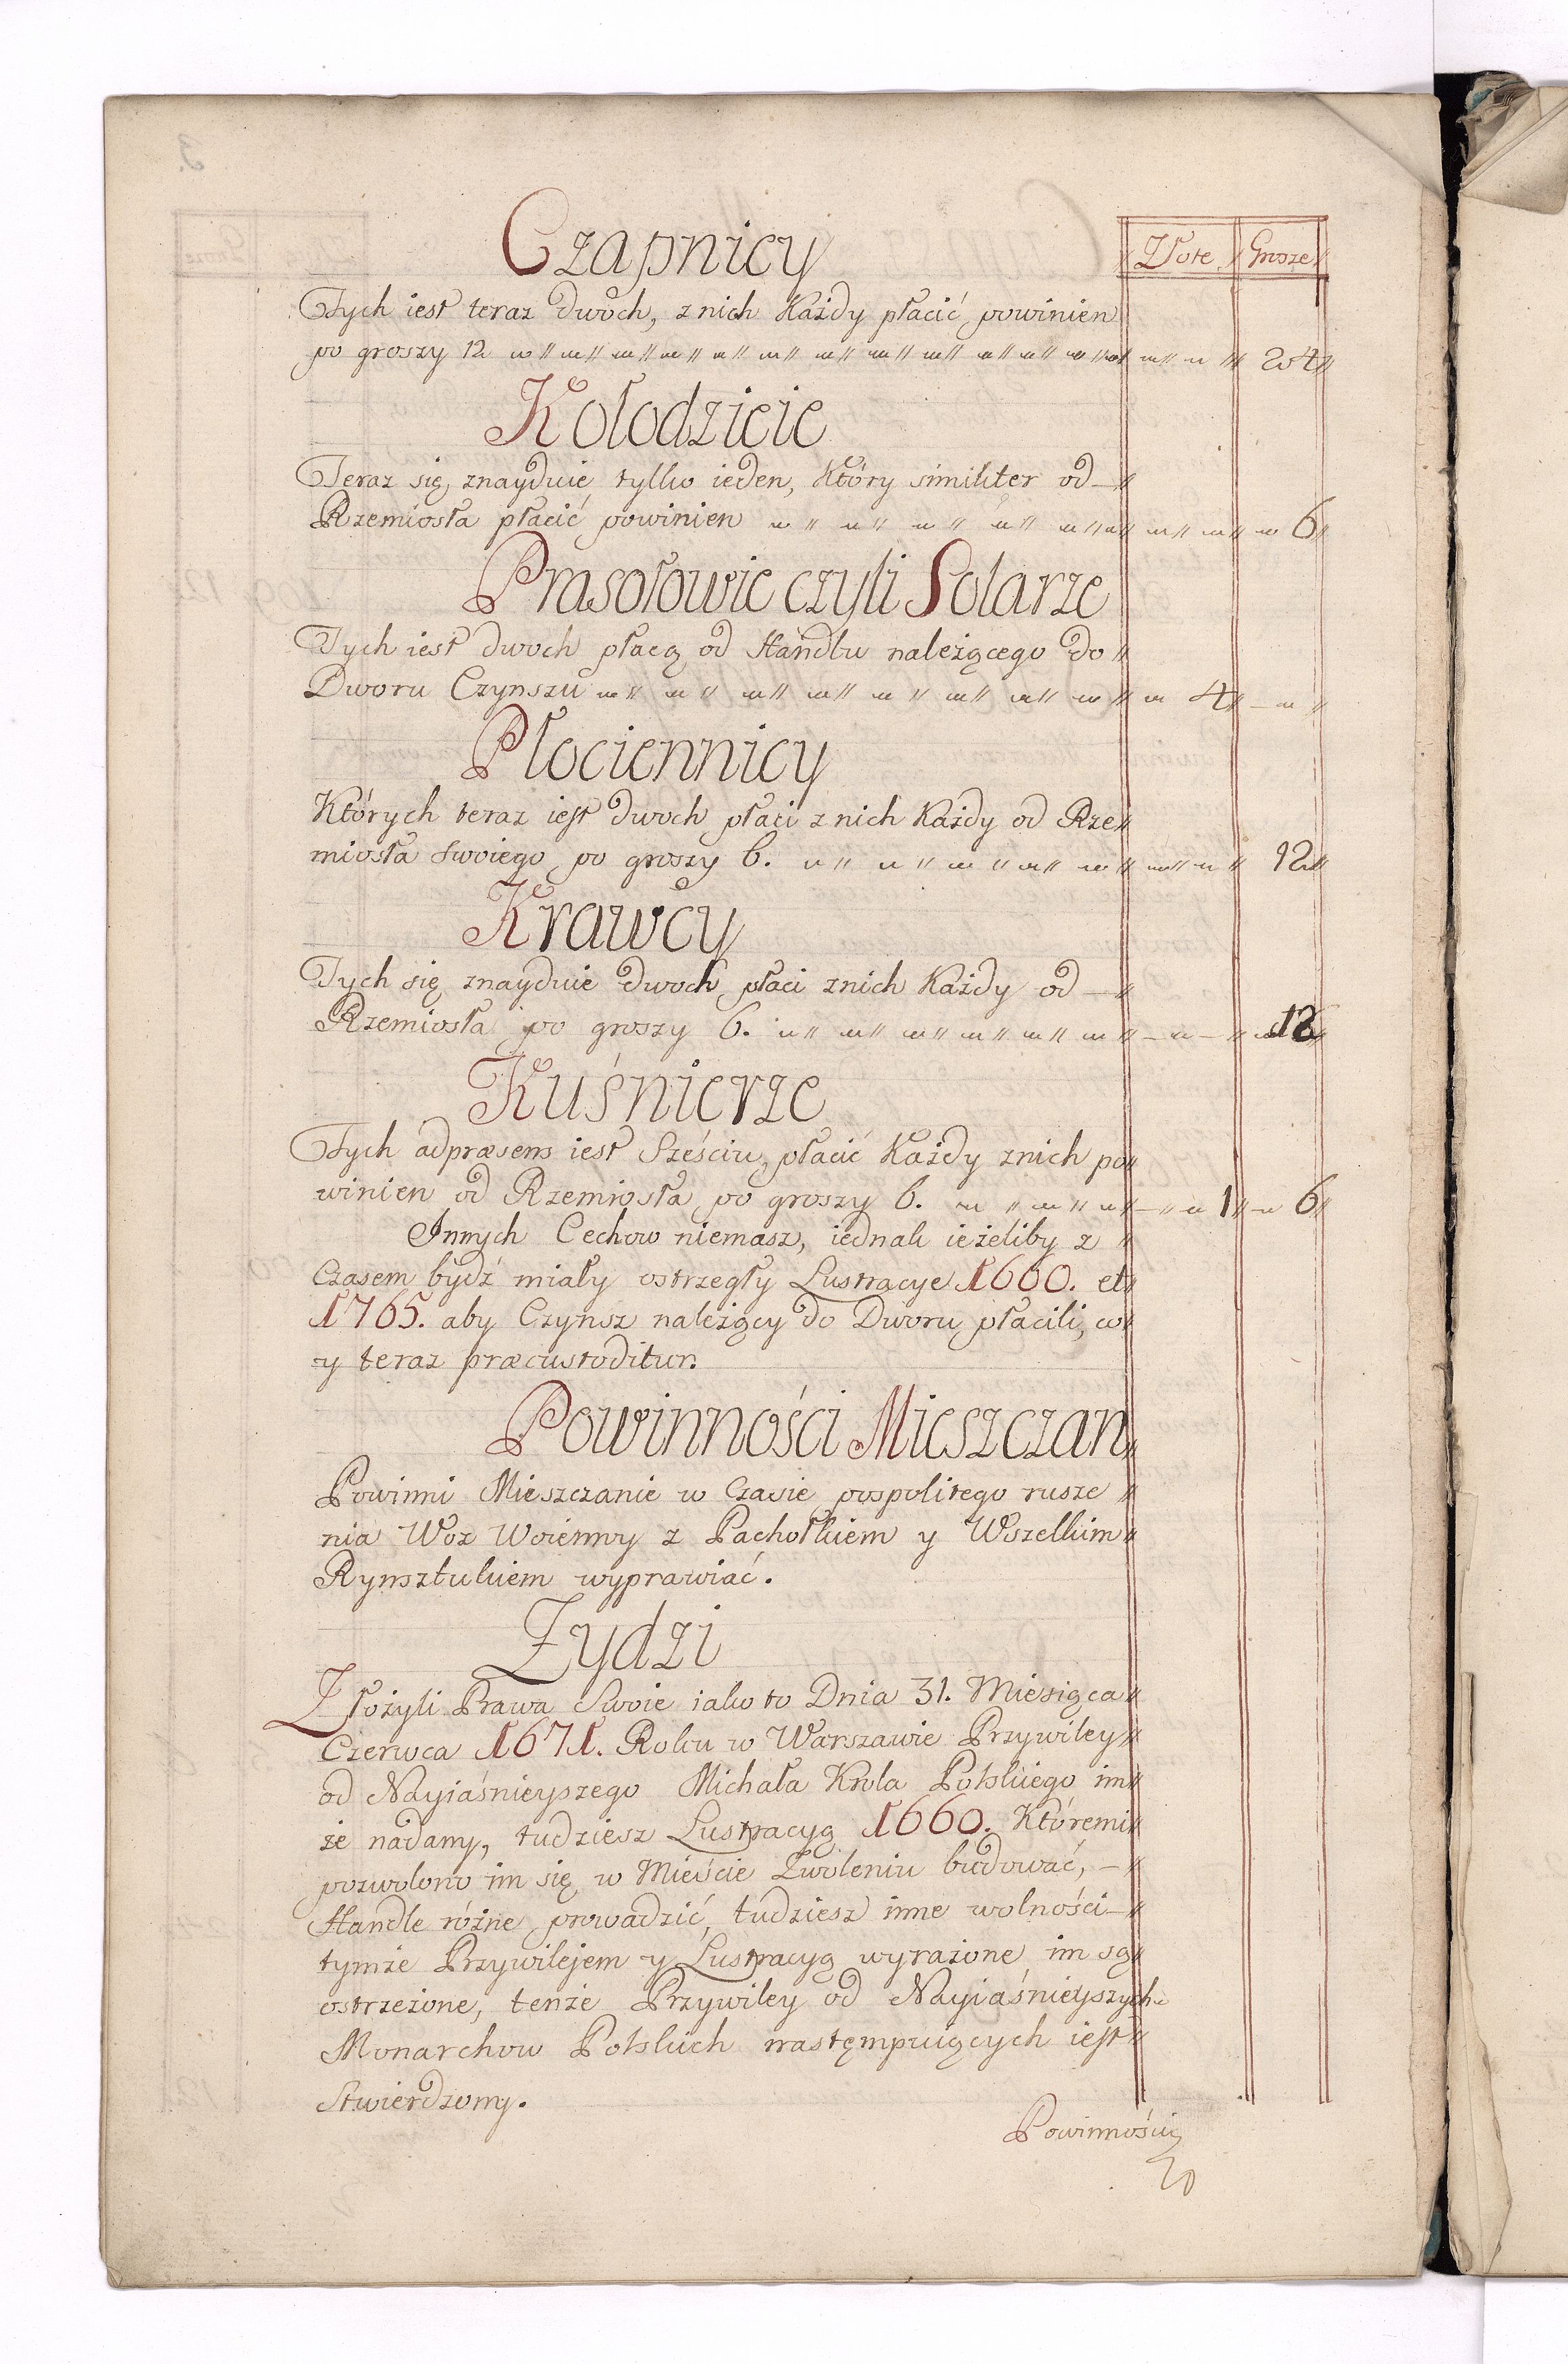 Złote Grosze
Czapnicy
Tych iest teraz dwoch, z nich Każdy płacić powinien
po groszy 12 24
Kołodzieie
Teraz się znayduie tylko ieden, Który similiter od
Rzemiosła płacić powinien 6
Prasołowie czyli Solarze
Tych iest dwoch płacą od Handlu należącego do
Dworu Czynszu 4
Płociennicy
Których teraz iest dwoch płaci z nich Każdy od Rze
miosła swoiego po groszy 6. 12
Krawcy
Tych się znayduie dwoch płaci znich Każdy od
Rzemiosła po groszy 6. 12
Kuśnierze
Tych adpræsens iest Sześciu, płacić Każdy znich po
winien od Rzemiosła po groszy 6. 1 6
Innych Cechow niemasz, iednak ieżeliby z
Czasem bydź miały ostrzegły Lustracye 1660. et
1765. aby Czynsz należący do Dworu płacili, co
y teraz præcustoditur.
Powinności Mieszczan
Powinni Mieszczanie w Czasie pospolitego rusze
nia Woz Woienny z Pachołkiem y Wszelkim
Rynsztukiem wyprawiać.
Żydzi
Złożyli Prawa Swoie iako to Dnia 31. Miesiąca
Czerwca 1671. Roku w Warszawie Przywiley
od Nayiaśnieyszego Michała Krola Polskiego im
że nadany, tudziesz Lustracyą 1660. Któremi
pozwolono im się w Mieście Zwoleniu budować,
Handle różne prowadzić, tudziesz inne wolności
tymże Przywilejem y Lustracyą wyrażone im są
ostrzeżone, tenże Przywiley od Nayiaśnieyszych
Monarchow Polskich następuiących iest
Stwierdzony.
Powinności